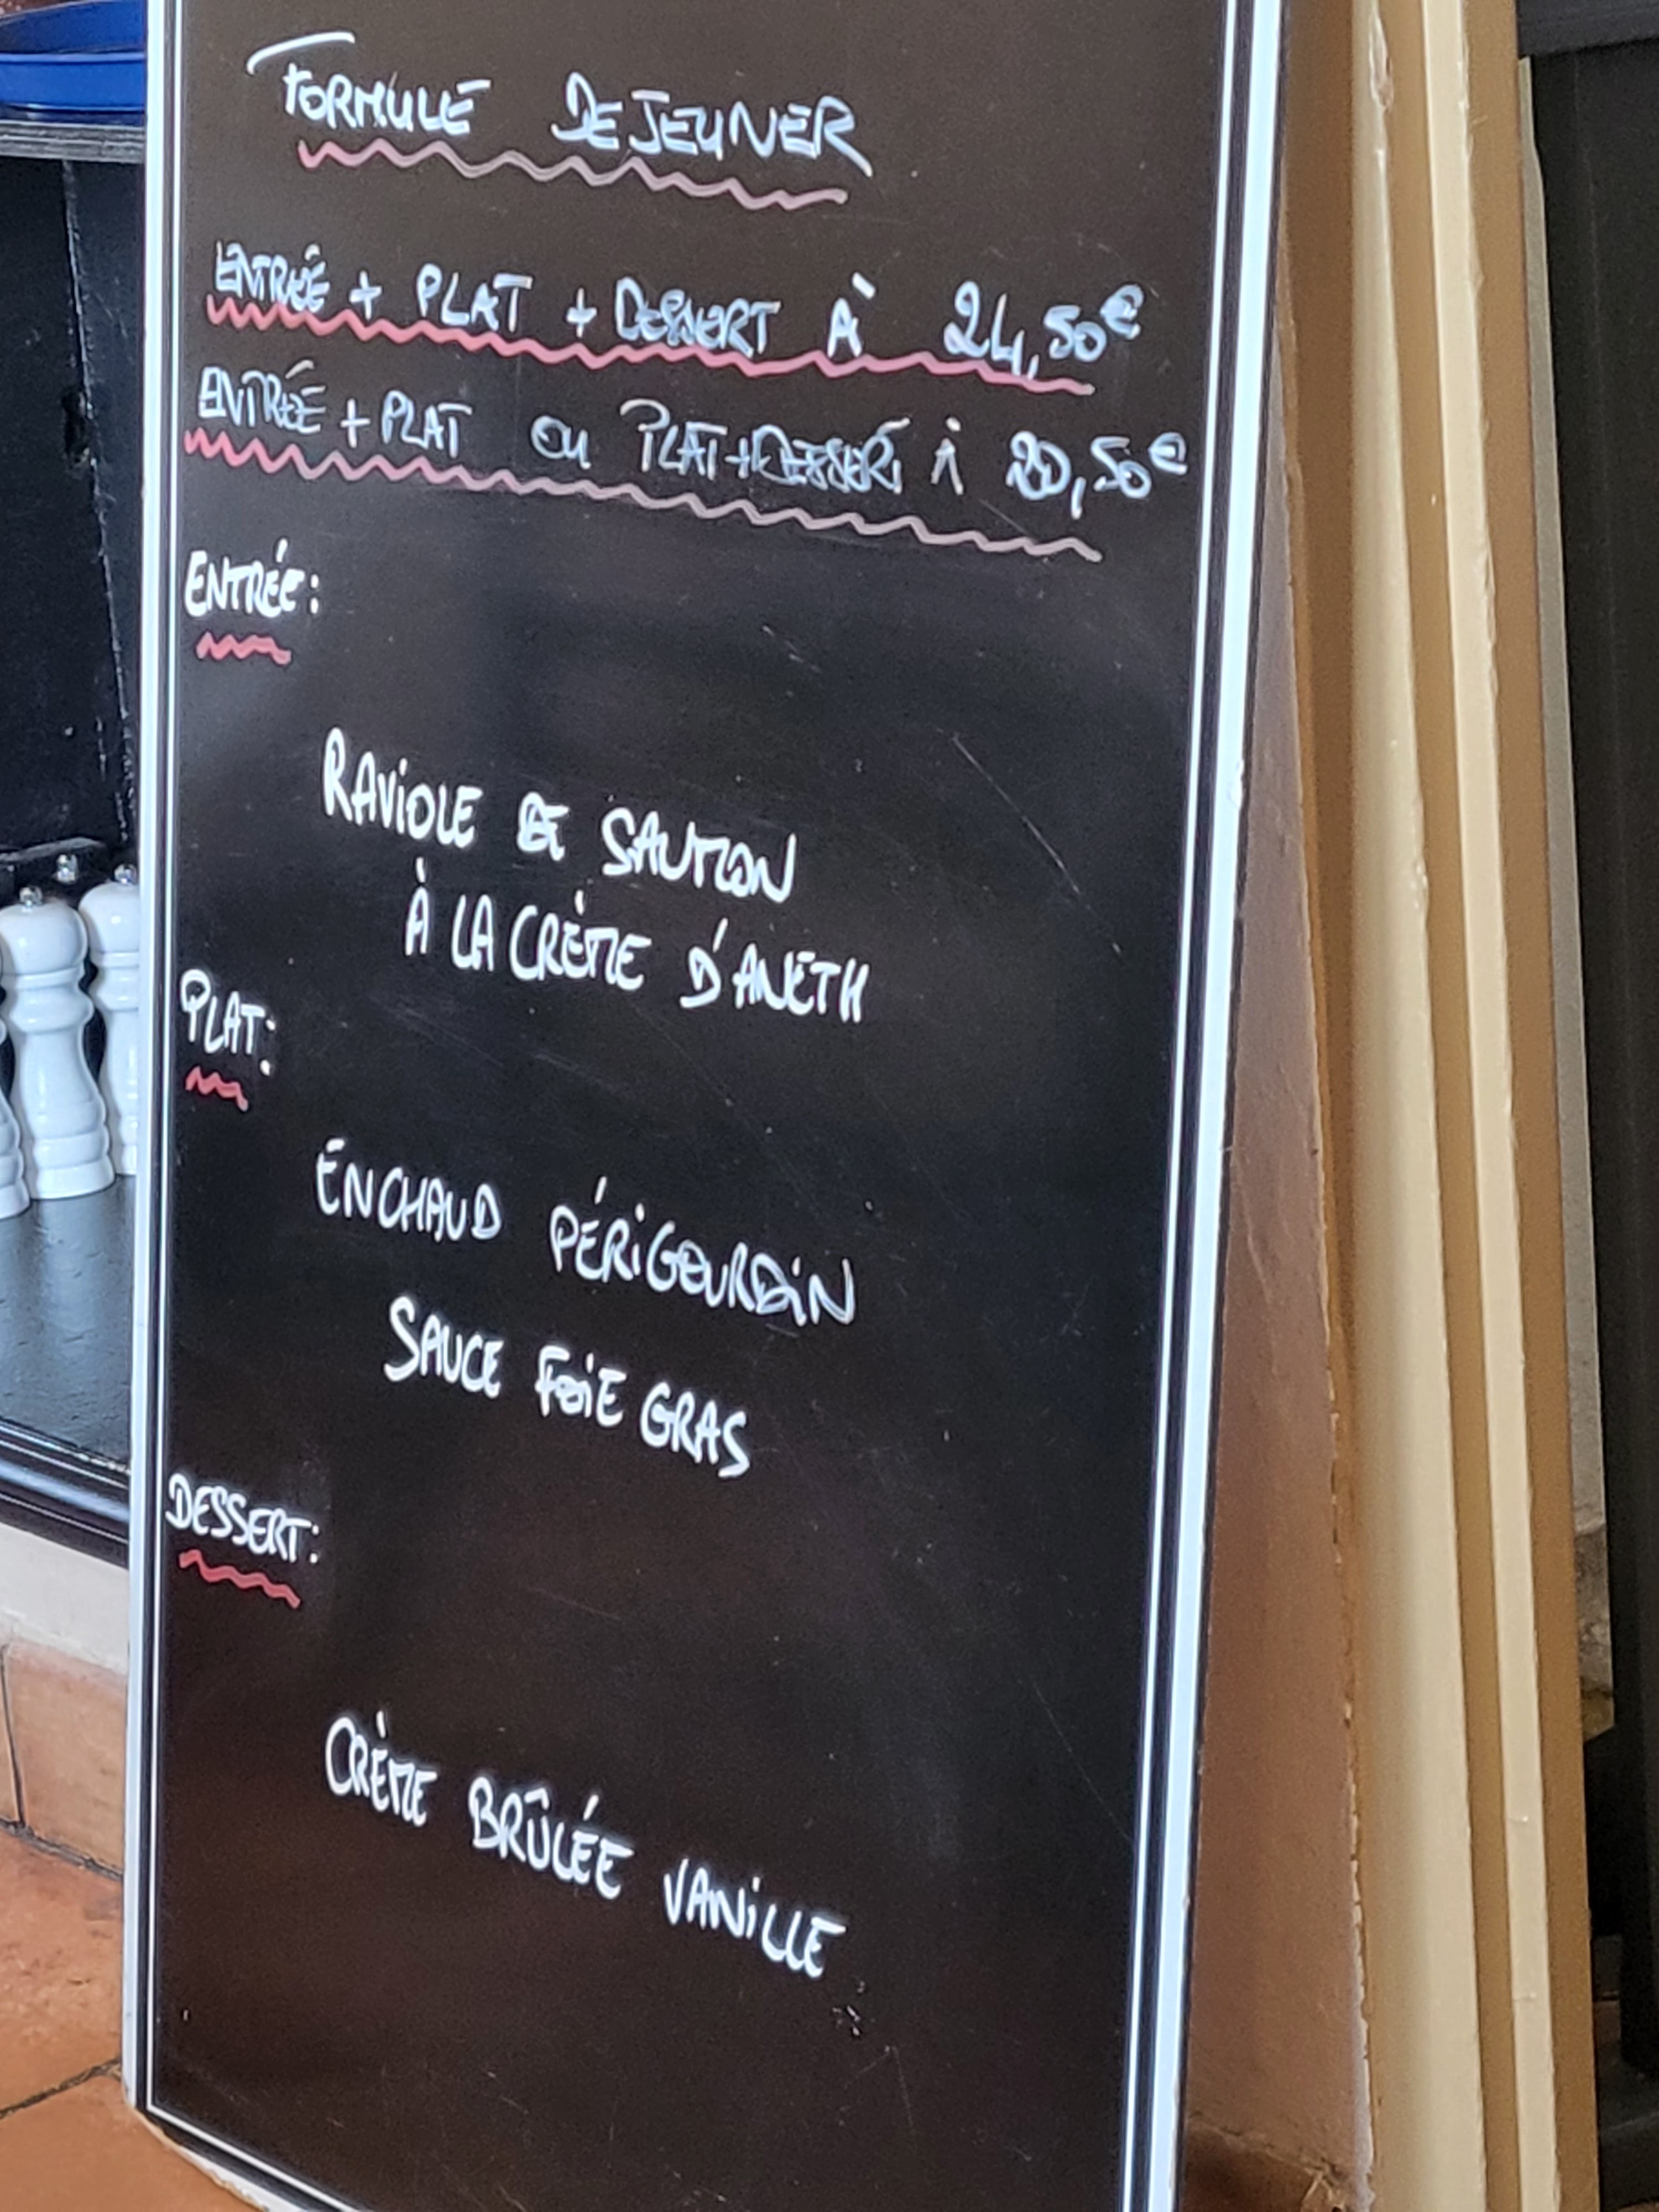 FORMULE DEJEUNER
ENTRÉE + PLAT + DESSERT À 24,50€
ENTRÉE + PLAT ou PLAT+DESSERT À 20,50€
ENTRÉE:
RAViOLE DE SAUMON
À LA CRÈME D'ANETH
PLAT:
ENCHAUD PÉRiGOURDiN
SAUCE FOiE GRAS
DESSERT:
CRÈME BRÛLÉE VANiLLE